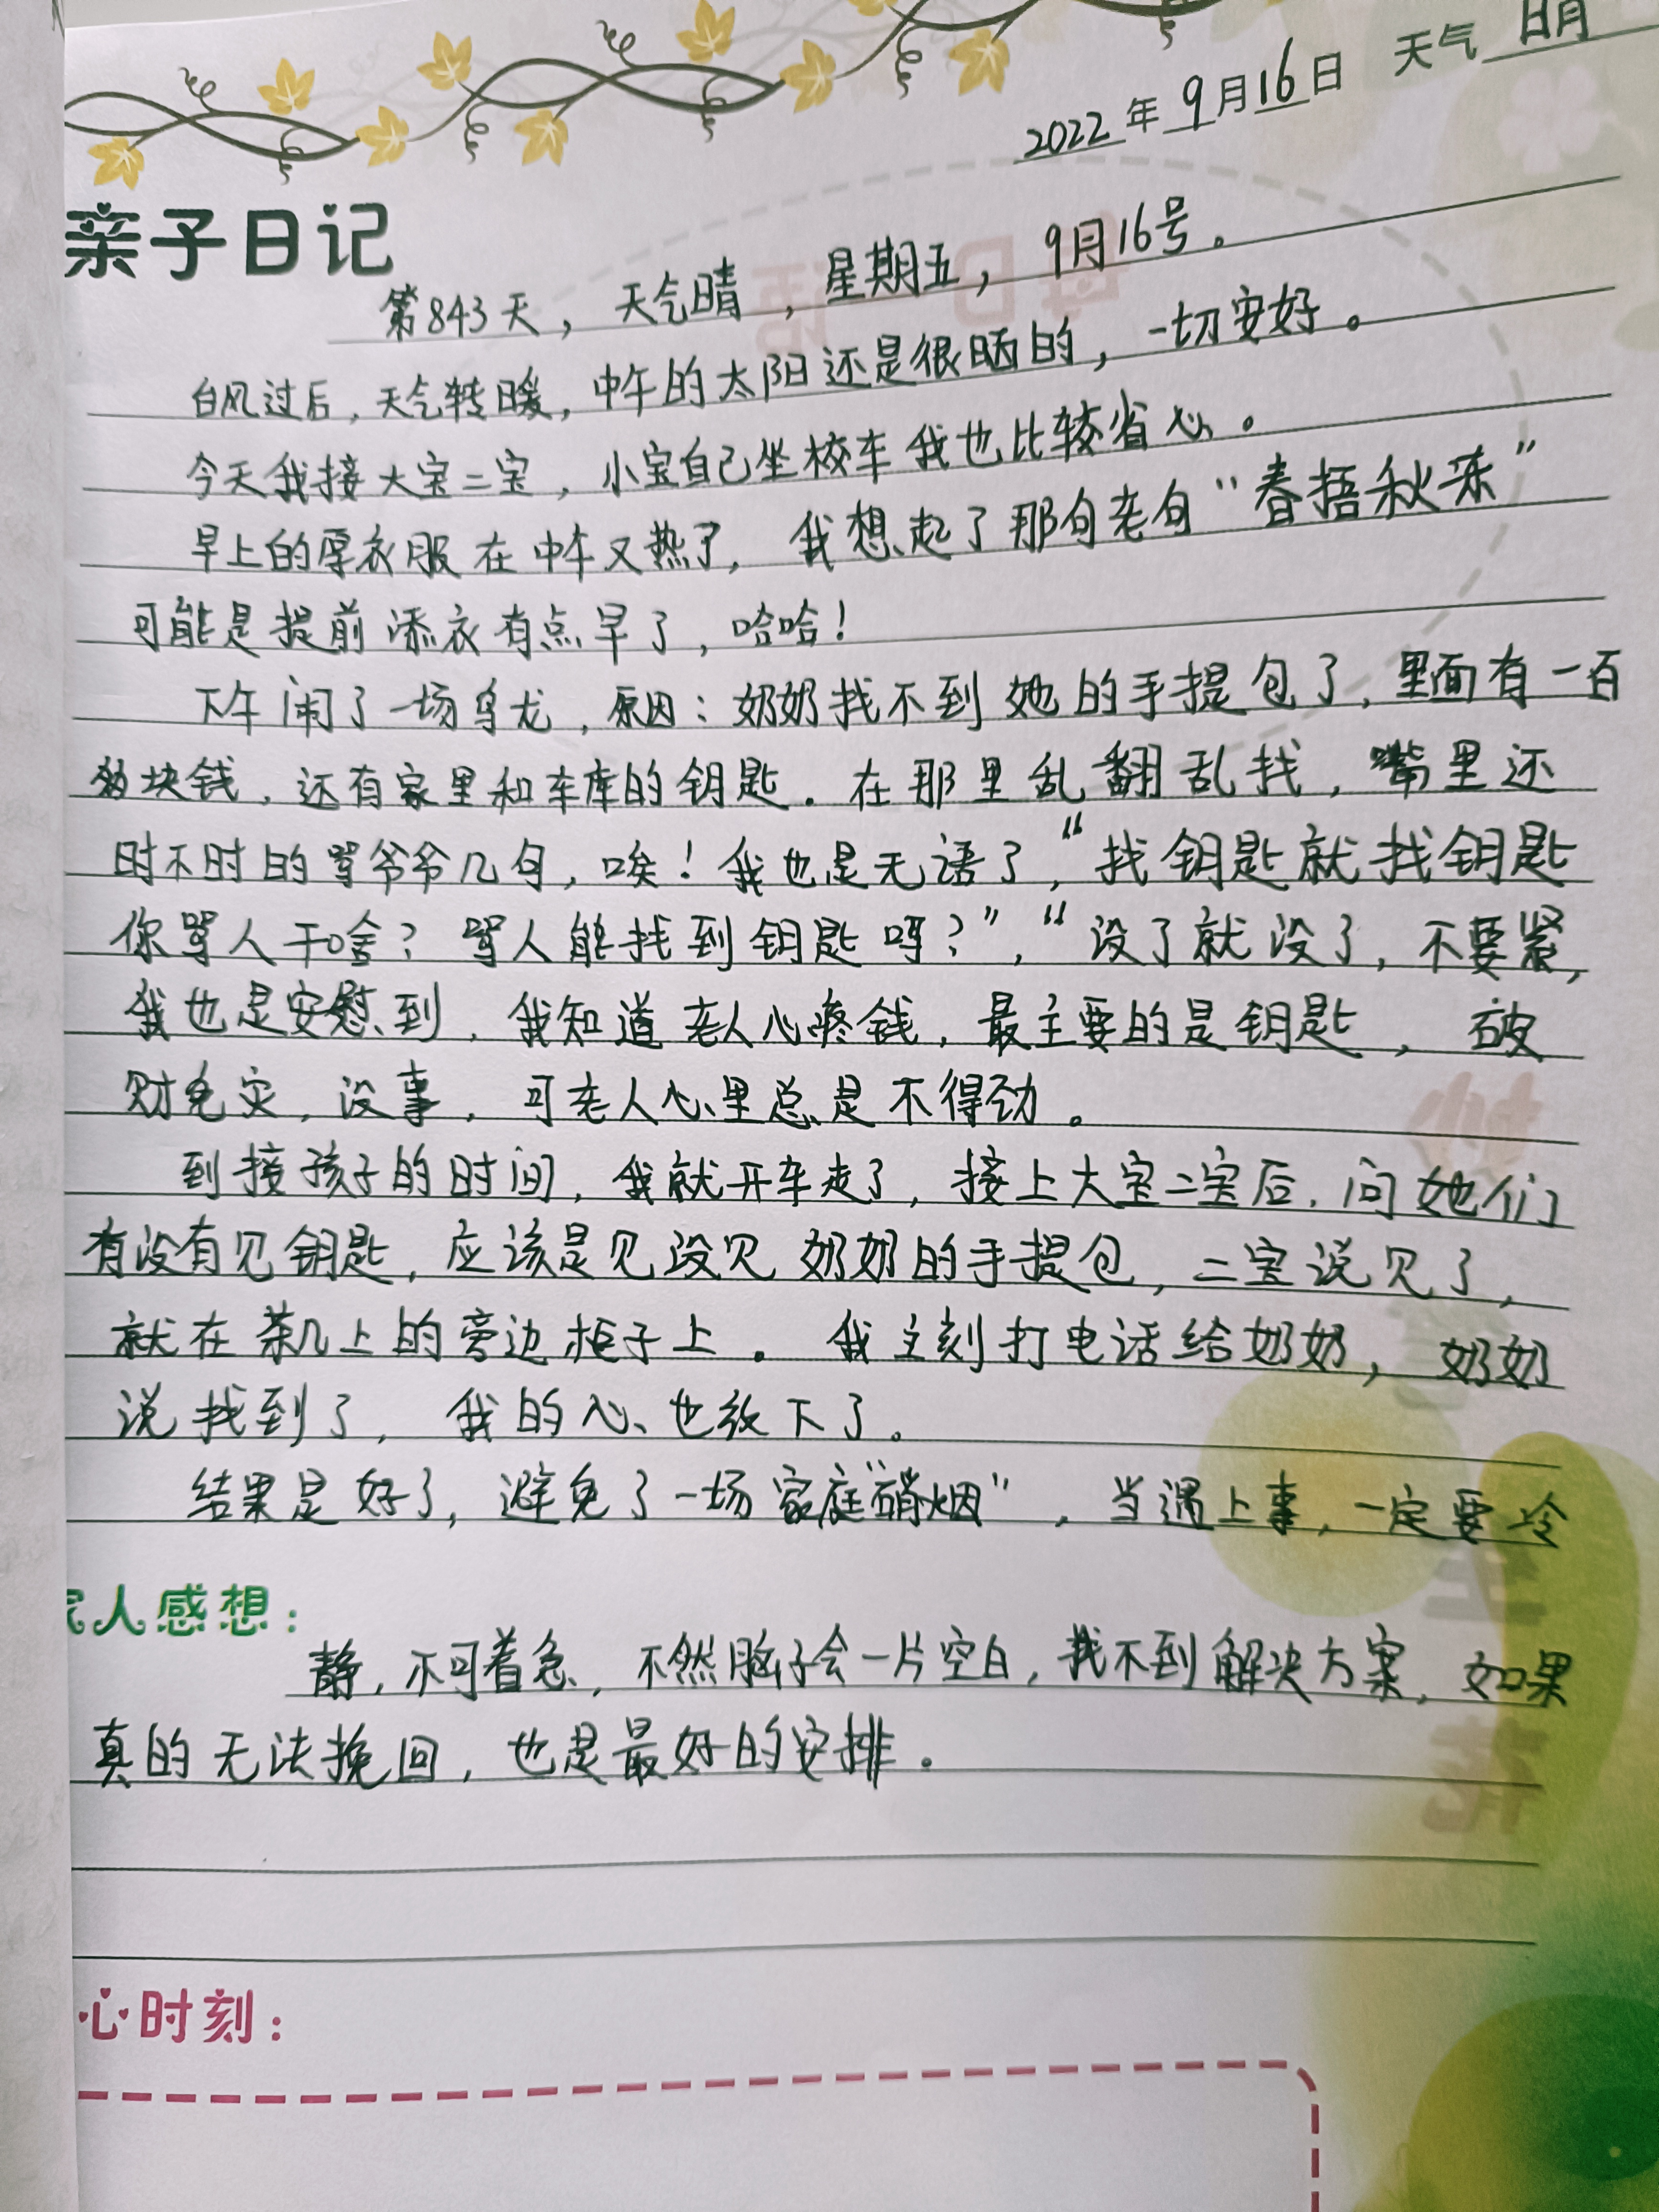 2022年9月16日 天气 明
亲子日记
第843天，天气晴，星期五，9月16号。
台风过后，天气转暖，中午的太阳还是很晒的，一切安好。
今天我接大宝二宝，小宝自己坐校车我也比较省心。
早上的厚衣服在中午又热了，我想起了那句老句“春捂秋冻”
可能是提前添衣有点早了，哈哈！
下午闹了一场乌龙，原因：奶奶找不到她的手提包了，里面有一百
多块钱，还有家里和车库的钥匙。在那里乱翻乱找，嘴里还
时不时的骂爷爷几句，唉！我也是无语了，“找钥匙就找钥匙
你骂人干啥？骂人能找到钥匙吗？”，“没了就没了，不要紧，
我也是安慰到，我知道老人心疼钱，最主要的是钥匙，破
财免灾，没事，可老人心里总是不得劲。
到接孩子的时间，我就开车走了，接上大宝二宝后，问她们
有没有见钥匙，应该是见没见奶奶的手提包，二宝说见了，
就在茶几上的旁边柜子上。我立刻打电话给奶奶，奶奶
说找到了，我的心也放下了。
结果是好了，避免了一场家庭“硝烟”，当遇上事，一定要冷
家人感想：
静，不可着急，不然脑子会一片空白，找不到解决方案，如果
真的无法挽回，也是最好的安排。
心时刻：